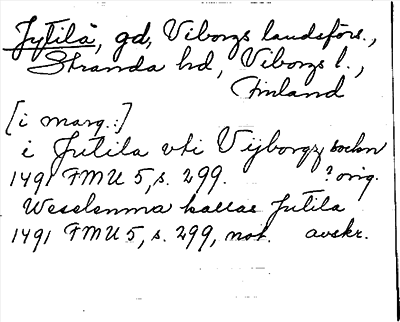 Jytilä, gd, Viborgs landsförs.,
Stranda hd, Viborgs l.,
Finland
[i marg.:]
i Jutila vti Vijborgz sockn
1491 FMU 5, s. 299. ? orig.
Weselenma kallas Jutila
1491 FMU 5, s. 299, not. avskr.